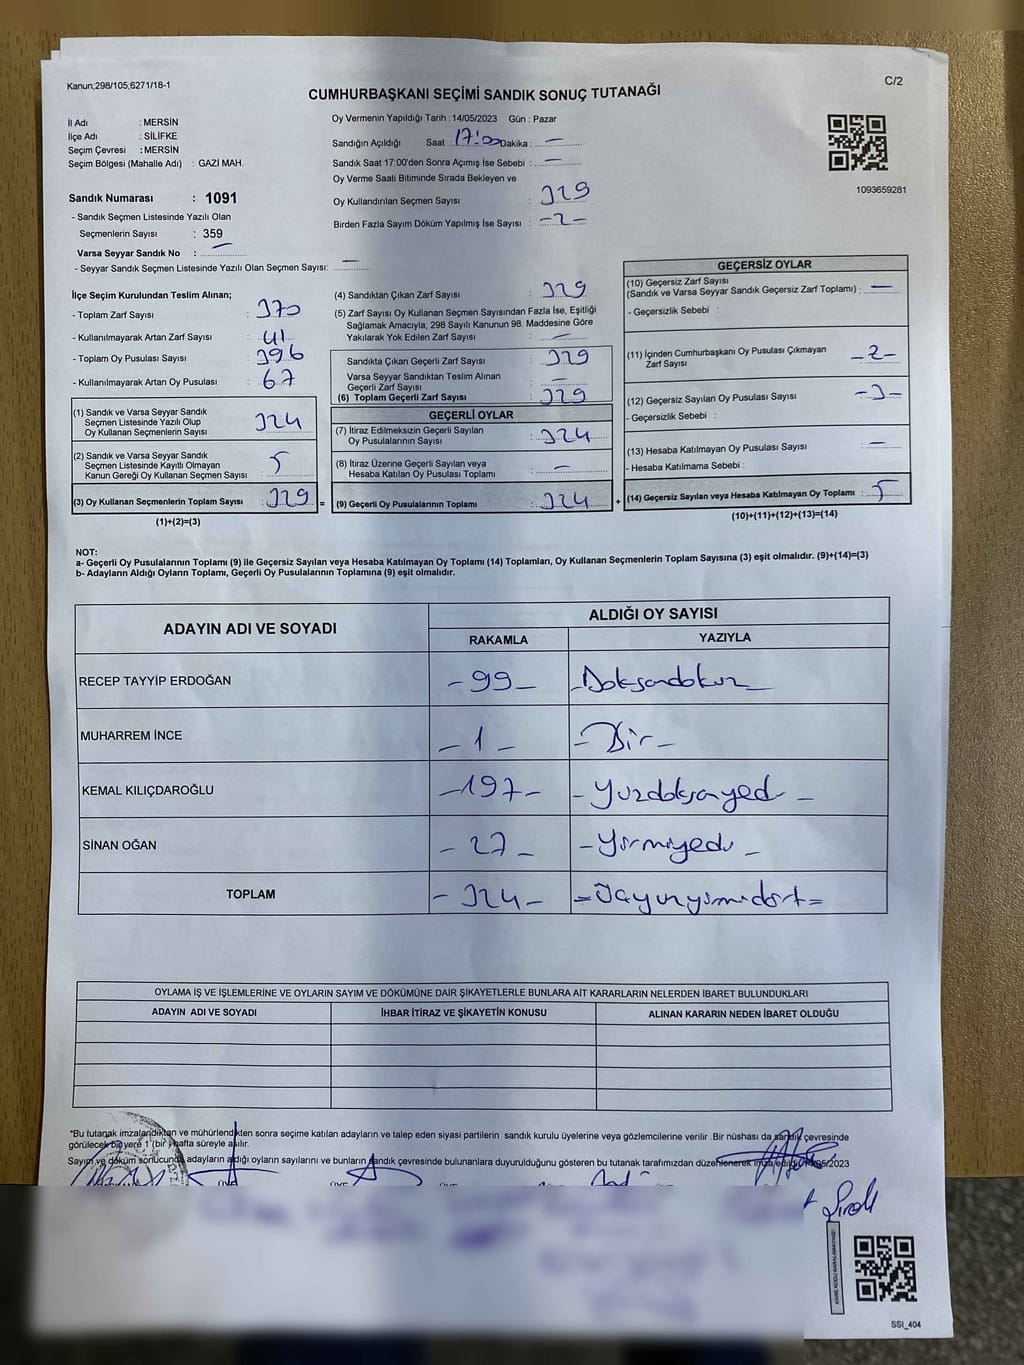 Kanun;298/105;6271/18-1
C/2
CUMHURBAŞKANI SEÇİMİ SANDIK SONUÇ TUTANAĞI
İl Adı : MERSİN
İlçe Adı : SİLİFKE
Seçim Çevresi : MERSİN
Seçim Bölgesi (Mahalle Adı) : GAZİ MAH.
Sandık Numarası : 1091
- Sandık Seçmen Listesinde Yazılı Olan
Seçmenlerin Sayısı : 359
Varsa Seyyar Sandık No : —
- Seyyar Sandık Seçmen Listesinde Yazılı Olan Seçmen Sayısı: —
Oy Vermenin Yapıldığı Tarih : 14/05/2023 Gün : Pazar
Sandığın Açıldığı Saat : 17:00 Dakika : —
Sandık Saat 17:00'den Sonra Açımış İse Sebebi : —
Oy Verme Saati Bitiminde Sırada Bekleyen ve
Oy Kullandırılan Seçmen Sayısı : 329
Birden Fazla Sayım Döküm Yapılmış İse Sayısı : -2-
1093659281
İlçe Seçim Kurulundan Teslim Alınan;
- Toplam Zarf Sayısı : 370
- Kullanılmayarak Artan Zarf Sayısı : 41
- Toplam Oy Pusulası Sayısı : 396
- Kullanılmayarak Artan Oy Pusulası : 67
(1) Sandık ve Varsa Seyyar Sandık
Seçmen Listesinde Yazılı Olup
Oy Kullanan Seçmenlerin Sayısı : 324
(2) Sandık ve Varsa Seyyar Sandık
Seçmen Listesinde Kayıtlı Olmayan
Kanun Gereği Oy Kullanan Seçmen Sayısı : 5
(3) Oy Kullanan Seçmenlerin Toplam Sayısı : 329 =
(1)+(2)=(3)
(4) Sandıktan Çıkan Zarf Sayısı : 329
(5) Zarf Sayısı Oy Kullanan Seçmen Sayısından Fazla İse, Eşitliği
Sağlamak Amacıyla; 298 Sayılı Kanunun 98. Maddesine Göre
Yakılarak Yok Edilen Zarf Sayısı : —
Sandıkta Çıkan Geçerli Zarf Sayısı : 329
Varsa Seyyar Sandıktan Teslim Alınan
Geçerli Zarf Sayısı : —
(6) Toplam Geçerli Zarf Sayısı : 329
GEÇERLİ OYLAR
(7) İtiraz Edilmeksizin Geçerli Sayılan
Oy Pusulalarının Sayısı : 324
(8) İtiraz Üzerine Geçerli Sayılan veya
Hesaba Katılan Oy Pusulası Toplamı : —
(9) Geçerli Oy Pusulalarının Toplamı : 324 +
GEÇERSİZ OYLAR
(10) Geçersiz Zarf Sayısı
(Sandık ve Varsa Seyyar Sandık Geçersiz Zarf Toplamı) : —
- Geçersizlik Sebebi :
(11) İçinden Cumhurbaşkanı Oy Pusulası Çıkmayan
Zarf Sayısı : -2-
(12) Geçersiz Sayılan Oy Pusulası Sayısı : -3-
- Geçersizlik Sebebi :
(13) Hesaba Katılmayan Oy Pusulası Sayısı : —
- Hesaba Katılmama Sebebi :
(14) Geçersiz Sayılan veya Hesaba Katılmayan Oy Toplamı : 5
(10)+(11)+(12)+(13)=(14)
NOT:
a- Geçerli Oy Pusulalarının Toplamı (9) ile Geçersiz Sayılan veya Hesaba Katılmayan Oy Toplamı (14) Toplamları, Oy Kullanan Seçmenlerin Toplam Sayısına (3) eşit olmalıdır. (9)+(14)=(3)
b- Adayların Aldığı Oyların Toplamı, Geçerli Oy Pusulalarının Toplamına (9) eşit olmalıdır.
ADAYIN ADI VE SOYADI
ALDIĞI OY SAYISI
RAKAMLA YAZIYLA
RECEP TAYYİP ERDOĞAN -99- -Doksandokuz-
MUHARREM İNCE -1- -Bir-
KEMAL KILIÇDAROĞLU -197- -Yüzdoksanyedi-
SİNAN OĞAN -27- -Yirmiyedi-
TOPLAM -324- =Üçyüzyirmidört=
OYLAMA İŞ VE İŞLEMLERİNE VE OYLARIN SAYIM VE DÖKÜMÜNE DAİR ŞİKAYETLERLE BUNLARA AİT KARARLARIN NELERDEN İBARET BULUNDUKLARI
ADAYIN ADI VE SOYADI İHBAR İTİRAZ VE ŞİKAYETİN KONUSU ALINAN KARARIN NEDEN İBARET OLDUĞU
*Bu tutanak imzalandıktan ve mühürlendikten sonra seçime katılan adayların ve talep eden siyasi partilerin sandık kurulu üyelerine veya gözlemcilerine verilir .Bir nüshası da sandık çevresinde
görülecek bir yere 1 (bir ) hafta süreyle asılır.
Sayım ve döküm sonucunda adayların aldığı oyların sayılarını ve bunların sandık çevresinde bulunanlara duyurulduğunu gösteren bu tutanak tarafımızdan düzenlenerek imza edildi 14/05/2023
SSI_404